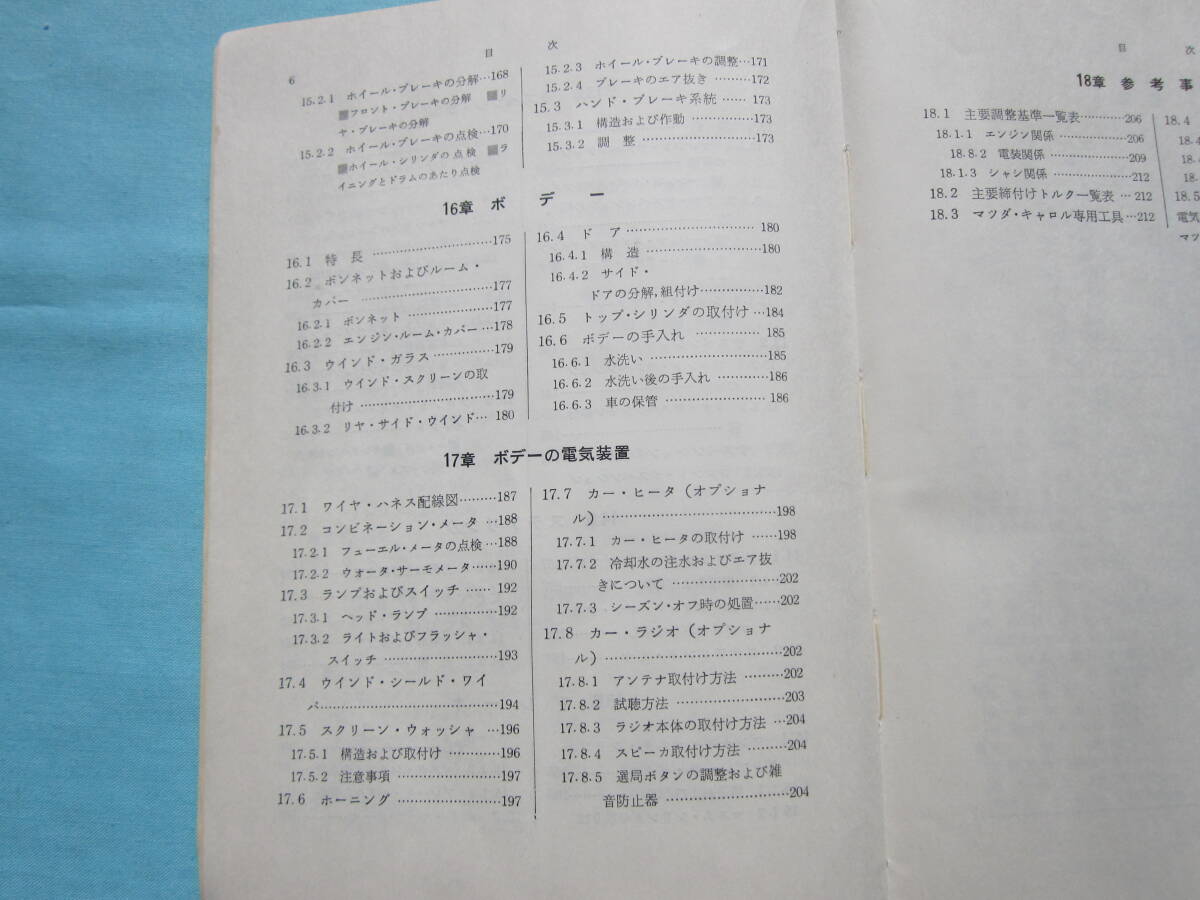 目 次
6
15.2.1 ホイール・ブレーキの分解…168
■フロント・ブレーキの分解 ■リ
ヤ・ブレーキの分解
15.2.2 ホイール・ブレーキの点検…170
■ホイール・シリンダの点検 ■ラ
イニングとドラムのあたり点検
15.2.3 ホイール・ブレーキの調整…171
15.2.4 ブレーキのエア抜き………172
15.3 ハンド・ブレーキ系統……173
15.3.1 構造および作動……………173
15.3.2 調 整……………………173
16章 ボ デ ー
16.1 特 長……………………175
16.2 ボンネットおよびルーム・
カバー……………………177
16.2.1 ボンネット………………177
16.2.2 エンジン・ルーム・カバー…178
16.3 ウインド・ガラス……………179
16.3.1 ウインド・スクリーンの取
付け……………………179
16.3.2 リヤ・サイド・ウインド…180
16.4 ド ア……………………180
16.4.1 構 造……………………180
16.4.2 サイド・
ドアの分解,組付け……………182
16.5 トップ・シリンダの取付け…184
16.6 ボデーの手入れ……………185
16.6.1 水洗い……………………185
16.6.2 水洗い後の手入れ…………186
16.6.3 車の保管…………………186
17章 ボデーの電気装置
17.1 ワイヤ・ハネス配線図………187
17.2 コンビネーション・メータ…188
17.2.1 フューエル・メータの点検…188
17.2.2 ウォータ・サーモメータ……190
17.3 ランプおよびスイッチ……192
17.3.1 ヘッド・ランプ……………192
17.3.2 ライトおよびフラッシャ・
スイッチ……………………193
17.4 ウインド・シールド・ワイ
パ……………………………194
17.5 スクリーン・ウォッシャ…196
17.5.1 構造および取付け…………196
17.5.2 注意事項…………………197
17.6 ホーニング…………………197
17.7 カー・ヒータ(オプショナ
ル)……………………………198
17.7.1 カー・ヒータの取付け……198
17.7.2 冷却水の注水およびエア抜
きについて…………………202
17.7.3 シーズン・オフ時の処置……202
17.8 カー・ラジオ(オプショナ
ル)……………………………202
17.8.1 アンテナ取付け方法………202
17.8.2 試聴方法…………………203
17.8.3 ラジオ本体の取付け方法…204
17.8.4 スピーカ取付け方法………204
17.8.5 選局ボタンの調整および雑
音防止器……………………204
目 次
18章 参 考 事
18.1 主要調整基準一覧表…………206
18.1.1 エンジン関係……………206
18.8.2 電装関係…………………209
18.1.3 シャシ関係………………212
18.2 主要締付けトルク一覧表…212
18.3 マツダ・キャロル専用工具…212
18.4
18.4
18.
18.
18.5
電気
マツ